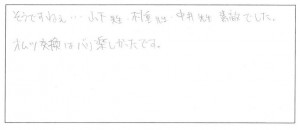 そうですねぇ… 山下先生、村重先生、中井先生 素敵でした。
オムツ交換は楽しかったです。